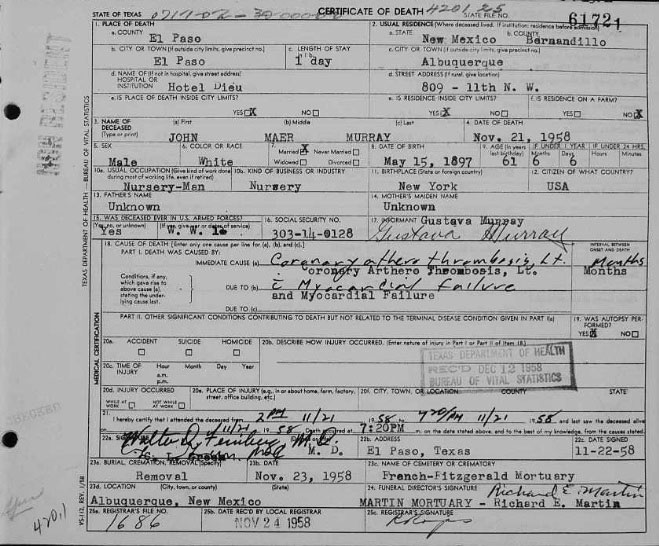 STATE OF TEXAS
CERTIFICATE OF DEATH
4201.25
STATE FILE NO.
61721
1. PLACE OF DEATH
a. COUNTY
El Paso
2. USUAL RESIDENCE (Where deceased lived. If institution: residence before admission)
a. STATE
New Mexico
b. COUNTY
Bernandillo
b. CITY OR TOWN (If outside city limits, give precinct no.)
El Paso
c. LENGTH OF STAY
1 day
c. CITY OR TOWN (If outside city limits, give precinct no.)
Albuquerque
d. NAME OF (If not in hospital, give street address)
HOSPITAL OR
INSTITUTION
Hotel Dieu
d. STREET ADDRESS (If rural, give location)
809 - 11th N. W.
e. IS PLACE OF DEATH INSIDE CITY LIMITS?
YES X NO
e. IS RESIDENCE INSIDE CITY LIMITS?
YES X NO
f. IS RESIDENCE ON A FARM?
YES NO X
3. NAME OF
DECEASED
(Type or print)
(a) First
JOHN
(b) Middle
MAER
(c) Last
MURRAY
4. DATE OF DEATH
Nov. 21, 1958
5. SEX
Male
6. COLOR OR RACE
White
7. Married X Never Married
Widowed Divorced
8. DATE OF BIRTH
May 15, 1897
9. AGE (In years
last birthday)
61
IF UNDER 1 YEAR
Months 6
Days 6
IF UNDER 24 HRS.
Hours Minutes
10a. USUAL OCCUPATION (Give kind of work done
during most of working life, even if retired)
Nursery-Man
10b. KIND OF BUSINESS OR INDUSTRY
Nursery
11. BIRTHPLACE (State or foreign country)
New York
12. CITIZEN OF WHAT COUNTRY?
USA
13. FATHER'S NAME
Unknown
14. MOTHER'S MAIDEN NAME
Unknown
15. WAS DECEASED EVER IN U.S. ARMED FORCES?
(Yes, no, or unknown) (If yes, give war or dates of service)
Yes W. W. 1
16. SOCIAL SECURITY NO.
303-14-0128
17. INFORMANT
Gustava Murray
Gustava Murray
18. CAUSE OF DEATH [Enter only one cause per line for (a), (b), and (c).]
PART I. DEATH WAS CAUSED BY:
IMMEDIATE CAUSE (a)
Coronary athero thrombosis, Lt.
coronary Arthero Thrombosis, Lt.
INTERVAL BETWEEN
ONSET AND DEATH
Months
Months
Conditions, if any,
which gave rise to
above cause (a),
stating the under-
lying cause last.
DUE TO (b)
c̄ Myocardial failure
and Myocardial Failure
DUE TO (c)
PART II. OTHER SIGNIFICANT CONDITIONS CONTRIBUTING TO DEATH BUT NOT RELATED TO THE TERMINAL DISEASE CONDITION GIVEN IN PART I(a)
19. WAS AUTOPSY PER-
FORMED?
YES X NO
20a. ACCIDENT SUICIDE HOMICIDE
20b. DESCRIBE HOW INJURY OCCURRED. (Enter nature of injury in Part I or Part II of Item 18.)
20c. TIME OF
INJURY
Hour Month Day Year
a.m.
p.m.
TEXAS DEPARTMENT OF HEALTH
REC'D DEC 12 1958
BUREAU OF VITAL STATISTICS
20d. INJURY OCCURRED
WHILE AT
WORK
NOT WHILE
AT WORK
20e. PLACE OF INJURY (e.g., in or about home, farm, factory,
street, office building, etc.)
20f. CITY, TOWN, OR LOCATION
COUNTY
STATE
21.
I hereby certify that I attended the deceased from 2 PM 11/21 1958 to 720 PM 11/21 1958 and last saw the deceased alive
on 11/21 1958 Death occurred at 7:20PM m. on the date stated above, and to the best of my knowledge, from the causes stated.
22a. SIGNATURE
Walter D. Feinberg M.D.
M. D.
22b. ADDRESS
El Paso, Texas
22c. DATE SIGNED
11-22-58
23a. BURIAL, CREMATION, REMOVAL (Specify)
Removal
23b. DATE
Nov. 23, 1958
23c. NAME OF CEMETERY OR CREMATORY
French-Fitzgerald Mortuary
23d. LOCATION (City, town, or county) (State)
Albuquerque, New Mexico
24. FUNERAL DIRECTOR'S SIGNATURE
Richard E. Martin
MARTIN MORTUARY - Richard E. Martin
25a. REGISTRAR'S FILE NO.
1686
25b. DATE REC'D BY LOCAL REGISTRAR
NOV 24 1958
25c. REGISTRAR'S SIGNATURE
NON RESIDENT
TEXAS DEPARTMENT OF HEALTH — BUREAU OF VITAL STATISTICS
MEDICAL CERTIFICATION
CHECKED
4201
VS-112, REV. 1/58